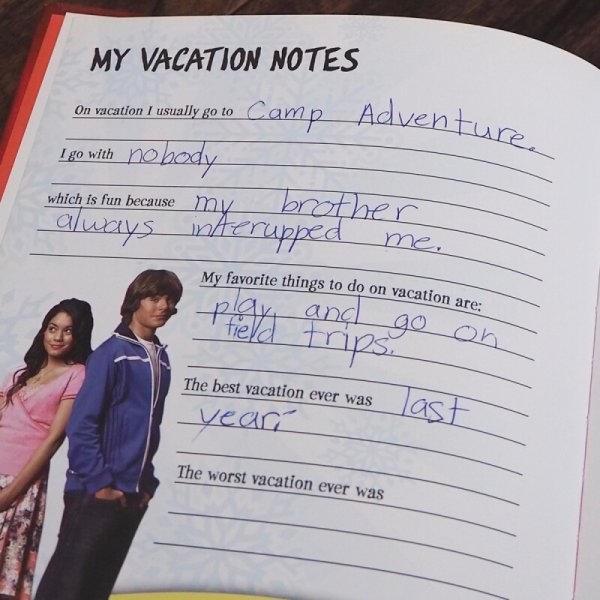 MY VACATION NOTES
On vacation I usually go to Camp Adventure.
I go with nobody
which is fun because my brother
always interupped me.
My favorite things to do on vacation are:
play and go on
field trips.
The best vacation ever was last
year.
The worst vacation ever was